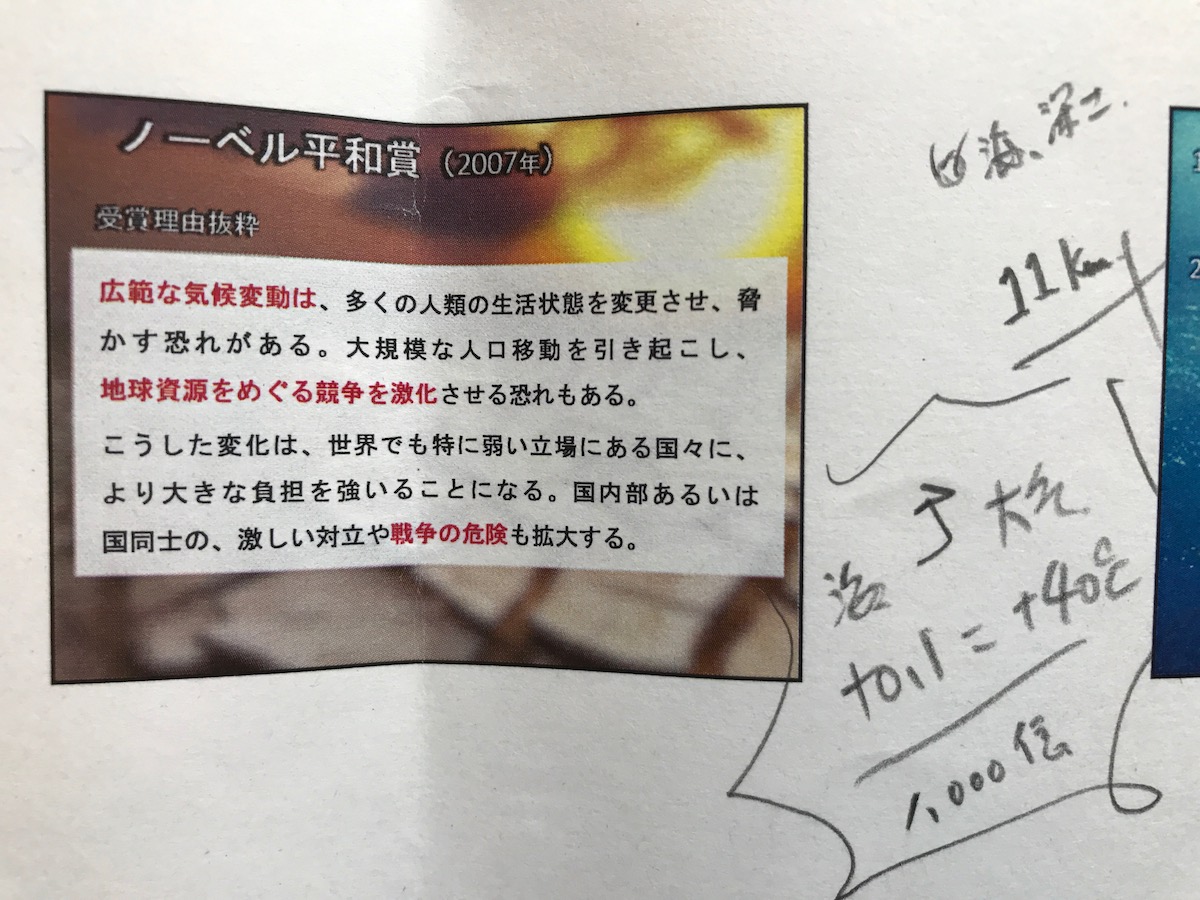 ノーベル平和賞（2007年）
受賞理由抜粋
広範な気候変動は、多くの人類の生活状態を変更させ、脅
かす恐れがある。大規模な人口移動を引き起こし、
地球資源をめぐる競争を激化させる恐れもある。
こうした変化は、世界でも特に弱い立場にある国々に、
より大きな負担を強いることになる。国内部あるいは
国同士の、激しい対立や戦争の危険も拡大する。
海、深さ.
11Km
大気
+0.1=+40℃
1,000倍
1
2